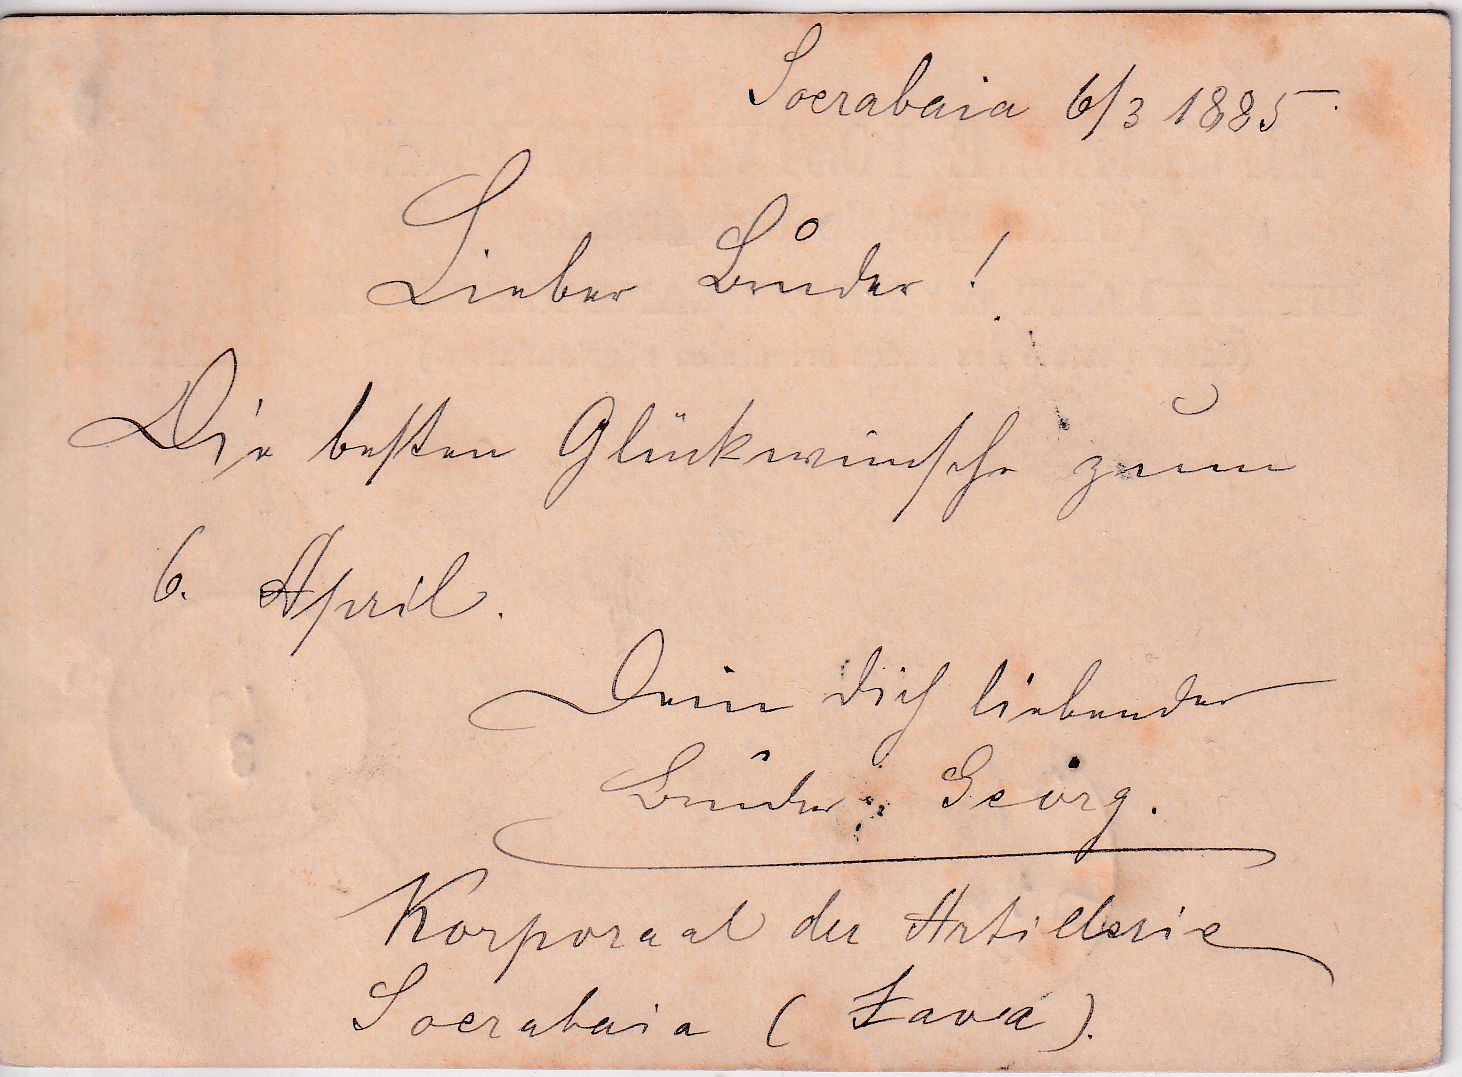 Soerabaia 6/3 1885
Lieber Bruder!
Die besten Glückwünsche zum
6. April.
Dein dich liebender
Bruder Georg.
Korporaal der Artillerie
Soerabaia (Java).